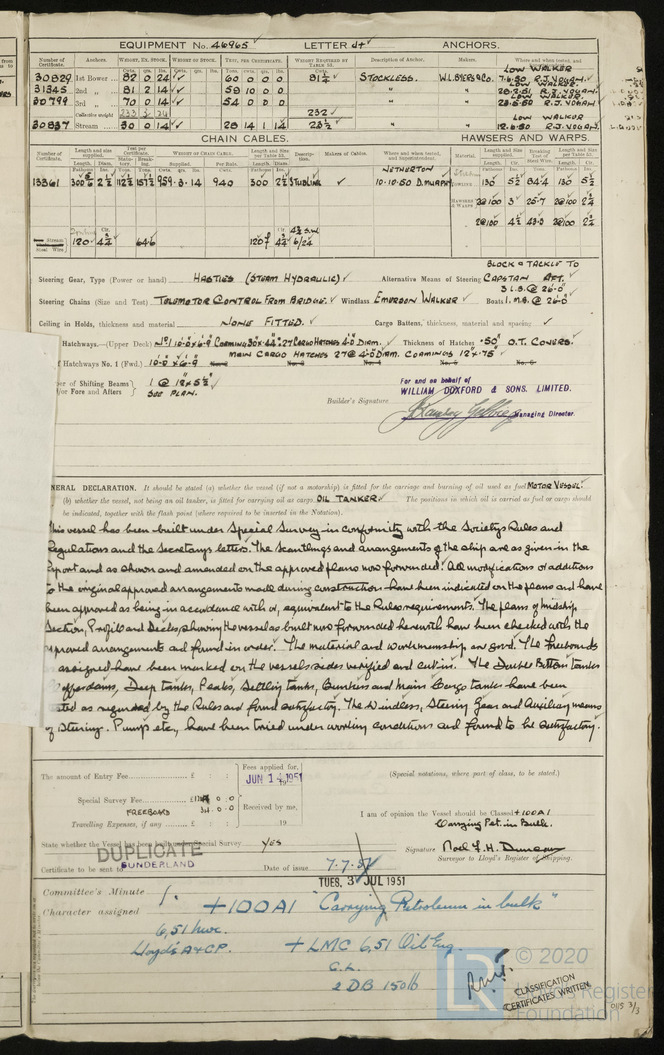 EQUIPMENT No. 46965 LETTER d+ ANCHORS.
Number of Certificate. Anchors. WEIGHT, EX. STOCK. WEIGHT OF STOCK. TEST, PER CERTIFICATE. WEIGHT REQUIRED BY TABLE 53. Description of Anchor. Makers. Where and when tested, and
30829 1st Bower 82 0 24 60 0 0 0 81½ STOCKLESS. W.L.BYERS & Co. LOW WALKER 7.6.50 R.J. VOGAN.
31345 2nd 81 2 14 59 10 0 0 " " LOW WALKER. 28.2.51 R.J. VOGAN.
30799 3rd 70 0 14 54 0 0 0 " " LOW WALKER. 23.5.50 R.J. VOGAN.
Collective weight 233 3 24 232
30837 Stream 30 0 14 28 14 1 14 28½ " " LOW WALKER 12.6.50 R.J. VOGAN.
CHAIN CABLES. HAWSERS AND WARPS.
Number of Certificate. Length and size supplied. Test per Certificate. WEIGHT OF CHAIN CABLE. Length and Size per Table 53. Description. Makers of Cables. Where and when tested, and Superintendent. Material. Length and Size supplied. Breaking Test of Steel Wire. Length and Size per Table 53.
Supplied. Per Rule.
NETHERTON
13361 300 2½ 112½ 157½ 959.3.14 940 300 2½ STUD LINK 10-10-50 D. MURPHY 130 5½ 84.4 130 5½
HAWSERS & WARPS 2@100 3 25.7 2@100 2¾
2@100 4½ 43.3 2@100 2¾
Stream Steel Wire. 120 4¾ 64.6 120 6/24
BLOCK & TACKLE TO
Steering Gear, Type (Power or hand) HASTIES (STEAM HYDRAULIC) Alternative Means of Steering CAPSTAN AFT.
3 L.B. @ 26'-0"
Steering Chains (Size and Test) TELEMOTOR CONTROL FROM BRIDGE. Windlass EMERSON WALKER Boats 1. M.B. @ 26'-0"
Ceiling in Holds, thickness and material NONE FITTED. Cargo Battens, thickness, material and spacing
Hatchways.—(Upper Deck) No 1 10-0 x 6-9 COAMING 30 x .44 : 27 CARGO HATCHES 4'-0 DIAM. Thickness of Hatches .50" O.T. COVERS.
MAIN CARGO HATCHES 27 @ 4'-0 DIAM. COAMINGS 12 x .75"
f Hatchways No. 1 (Fwd.) 10-0 x 6-9 No. 2 No. 3 No. 4 No. 5 No. 6
er of Shifting Beams 1 @ 12 x 5½
/or Fore and Afters SEE PLAN.
For and on behalf of
WILLIAM DOXFORD & SONS. LIMITED.
Builder's Signature Managing Director.
NERAL DECLARATION. It should be stated (a) whether the vessel (if not a motorship) is fitted for the carriage and burning of oil used as fuel MOTOR VESSEL.
(b) whether the vessel, not being an oil tanker, is fitted for carrying oil as cargo. OIL TANKER. The positions in which oil is carried as fuel or cargo should
be indicated, together with the flash point (where required to be inserted in the Notation).
This vessel has been built under Special Survey in conformity with the Society's Rules and
Regulations and the Secretary's letters. The Scantlings and arrangements of the ship are as given in the
Report and as shown and amended on the approved plans now forwarded. All modifications or additions
to the original approved arrangements made during construction have been indicated on the plans and have
been approved as being in accordance with or, equivalent to the Rules requirements. The plans of Midship
Section, Profile and Decks, showing the vessel as built now forwarded herewith have been checked with the
approved arrangements and found in order. The material and workmanship are good. The freeboards
assigned have been marked on the vessel's sides verified and cut in. The Double Bottom tanks
Cofferdams, Deep tanks, Peaks, Settling tanks, Bunkers and Main Cargo tanks have been
tested as required by the Rules and found satisfactory. The Windlass, Steering Gear and Auxiliary means
of Steering. Pumps etc., have been tried under working conditions and found to be satisfactory.
The amount of Entry Fee £ : : Fees applied for,
JUN 14 1951
(Special notations, where part of class, to be stated.)
Special Survey Fee £ 0 . 0
FREEBOARD 0.0 Received by me,
Travelling Expenses, if any £ : : 19
I am of opinion the Vessel should be Classed +100A1
Carrying Pet. in Bulk.
State whether the Vessel has been built under Special Survey YES
DUPLICATE
Signature Noel F.H. Duncan
Surveyor to Lloyd's Register of Shipping.
Certificate to be sent to SUNDERLAND Date of issue 7.7.51
TUES. 3 JUL 1951
Committee's Minute
Character assigned +100A1 "Carrying Petroleum in bulk"
6,51
Lloyd's A & CP. +LMC 6,51 Oil Eng
C.L.
2 DB 150 lb
CLASSIFICATION
CERTIFICATES WRITTEN
© 2020
LR
Lloyd's Register
Foundation
0115 3/3